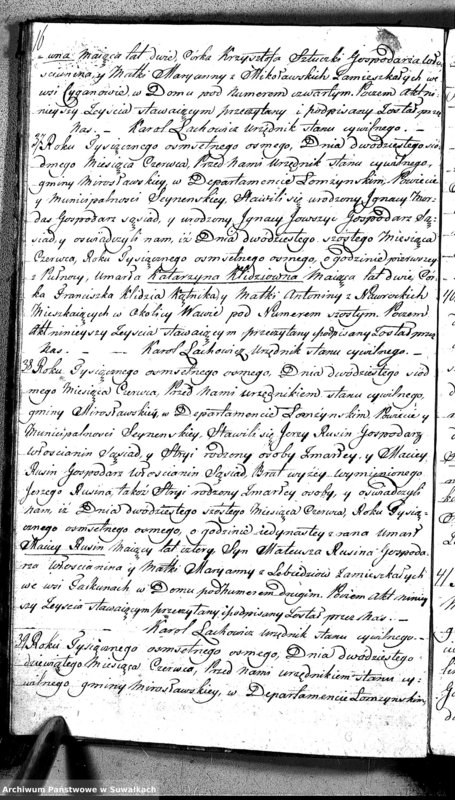 16
- wna Maiąca lat dwie, Corka Krzysztofa Sztucki Gospodarza Wło-
scianina, y Matki Maryanny z Mikoławskich Zamieszkałych we
wsi Cyganowie, w Domu pod Numerem czwartym. Poczem Akt ni-
nieyszy Zeyscia stawaiącym przeczytany i podpisany Został przez
Nas. - Karol Lachowicz Urzędnik stanu cywilnego. -
37. Roku Tysiącznego osmsetnego osmego, Dnia dwudziestego sio-
dmego Miesiąca Czerwca, Przed Nami Urzędnik stanu cywilnego,
gminy Mirosławskiey, w Departamencie Łomżynskim, Powiecie
y Municipalnosci Seynenskiey, Stawili się urodzony Ignacy Mor-
das Gospodarz sąsiad, y urodzony Ignacy Jowszyc Gospodarz Są-
siad, y oswiadczyli nam, iż Dnia dwudziestego szostego Miesiąca
Czerwca, Roku Tysiącznego osmsetnego osmego, o godzinie pierwszy
z Pułnocy, Umarła Katarzyna Kidziowna Maiąca lat dwie, Cor-
ka Franciszka Kidzia Kątnika, y Matki Antoniny z Naworskich
Mieszkaiących w Okolicy Wawie pod Numerem szostym. Poczem
Akt ninieyszy Zeyscia stawaiącym przeczytany i podpisany Został przez
Nas. - - Karol Lachowicz Urzędnik stanu cywilnego. -
38. Roku Tysiącznego osmsetnego osmego, Dnia dwudziestego siod-
mego Miesiąca Czerwca, Przed Nami Urzędnikiem stanu cywilnego,
gminy Mirosławskiey, w Departamencie Łomżynskim, Powiecie y
Municipalnosci Seynenskiey, Stawili się Jerzy Rusin Gospodarz
Włoscianin Sąsiad, y Stryi rodzony osoby Zmarłey, y Maciey
Rusin Gospodarz Włoscianin Sąsiad, Brat wyżey wymienionego
Jerzego Rusina, także Stryi rodzony Zmarłey osoby, y oswiadczyli
nam, iż Dnia dwudziestego szostego Miesiąca Czerwca, Roku Tysią-
cznego osmsetnego osmego, o godzinie iedynastey z rana Umarł
Maciey Rusin Maiący lat cztery, Syn Mateusza Rusina Gospoda-
rza Włoscianina y Matki Maryanny z Lebiedziow Zamieszkałych
we wsi Gaikunach w Domu pod numerem drugim. Poczem Akt niniey-
szy Zeyscia stawaiącym przeczytany i podpisany Został przez Nas. -
- Karol Lachowicz Urzędnik stanu cywilnego. -
39. Roku Tysiącznego osmsetnego osmego, Dnia dwudziestego
dziewiątego Miesiąca Czerwca, Przed Nami Urzędnikiem stanu cy-
wilnego gminy Mirosławskiey, w Departamencie Łomżynskim,
Archiwum Państwowe w Suwałkach